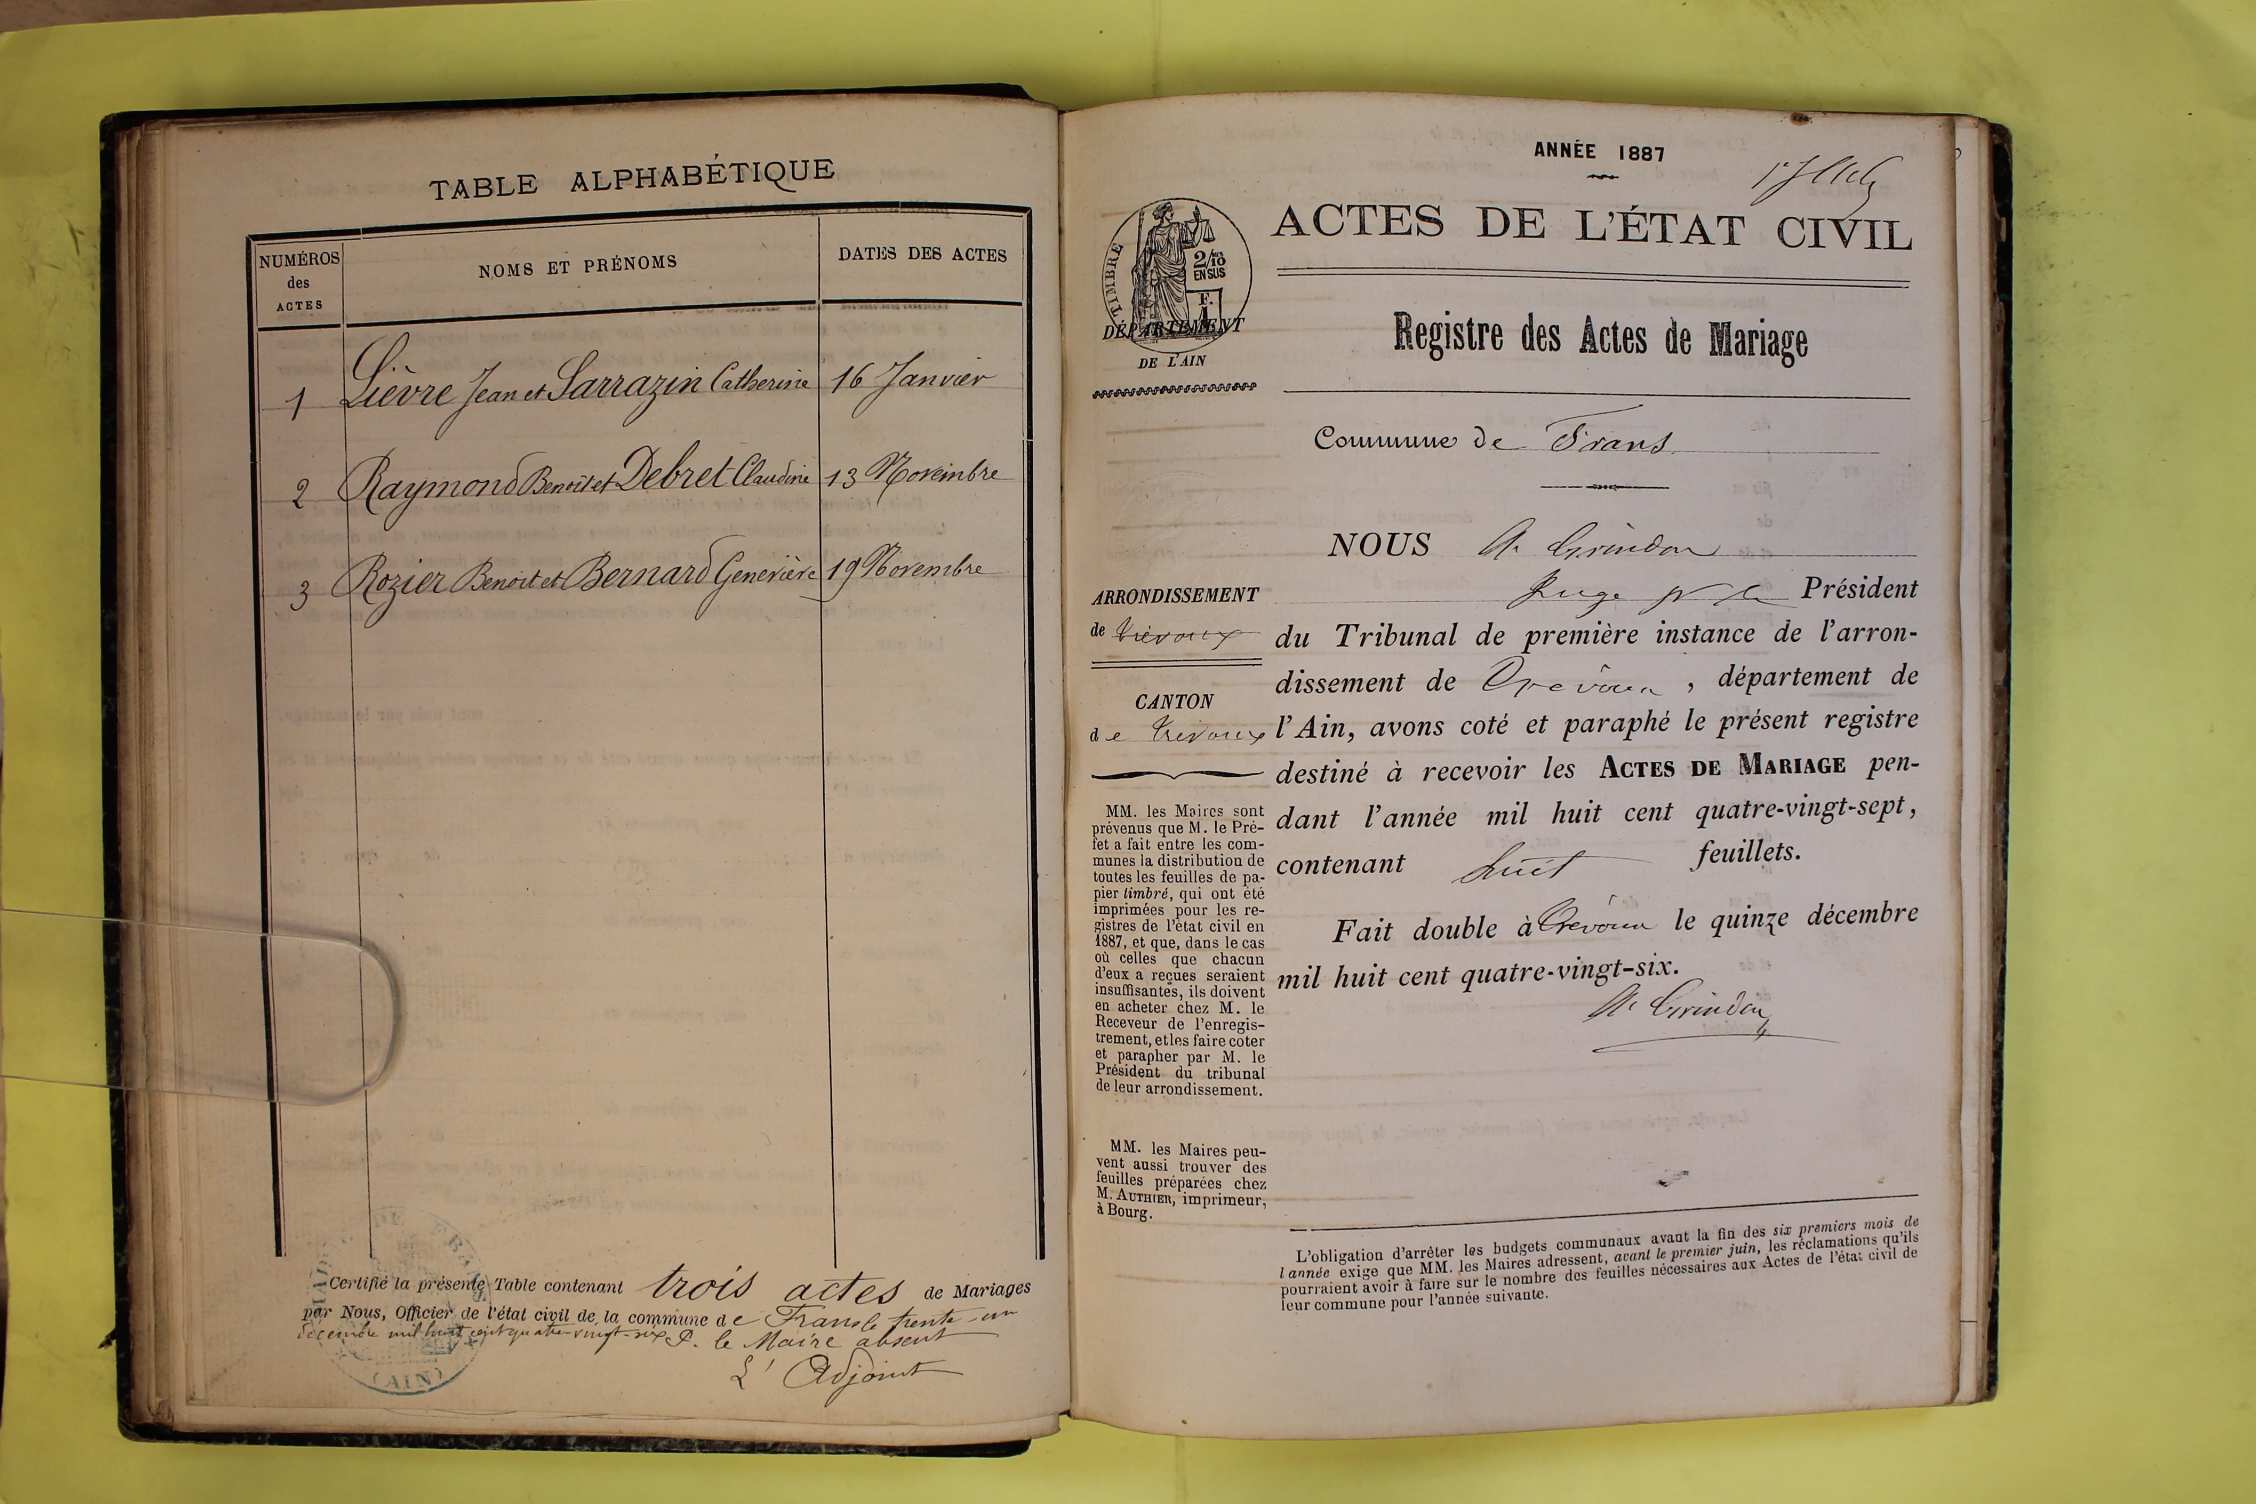 TABLE ALPHABÉTIQUE
NUMÉROS des ACTES
NOMS ET PRÉNOMS
DATES DES ACTES
1 Lièvre Jean et Sarrazin Catherine 16 Janvier
2 Raymond Benoit et Debret Claudine 13 Novembre
3 Rozier Benoit et Bernard Geneviève 19 Novembre
Certifié la présente Table contenant trois actes de Mariages
par Nous, Officier de l'état civil de la commune de Frans le trente-un
décembre mil huit cent quatre-vingt-six P. le Maire absent
L'Adjoint
(AIN)
ANNÉE 1887
ACTES DE L'ÉTAT CIVIL
TIMBRE
2/10
EN SUS
F.
DÉPARTEMENT
DE L'AIN
Registre des Actes de Mariage
Commune de Frans
ARRONDISSEMENT
de Trévoux
CANTON
de Trévoux
MM. les Maires sont
prévenus que M. le Pré-
fet a fait entre les com-
munes la distribution de
toutes les feuilles de pa-
pier timbré, qui ont été
imprimées pour les re-
gistres de l'état civil en
1887, et que, dans le cas
où celles que chacun
d'eux a reçues seraient
insuffisantes, ils doivent
en acheter chez M. le
Receveur de l'enregis-
trement, et les faire coter
et parapher par M. le
Président du tribunal
de leur arrondissement.
MM. les Maires peu-
vent aussi trouver des
feuilles préparées chez
M. AUTHIER, imprimeur,
à Bourg.
NOUS A. Grindon
Juge pr le Président
du Tribunal de première instance de l'arron-
dissement de Trévoux, département de
l'Ain, avons coté et paraphé le présent registre
destiné à recevoir les ACTES DE MARIAGE pen-
dant l'année mil huit cent quatre-vingt-sept,
contenant huit feuillets.
Fait double à Trévoux le quinze décembre
mil huit cent quatre-vingt-six.
A. Grindon
L'obligation d'arrêter les budgets communaux avant la fin des six premiers mois de
l'année exige que MM. les Maires adressent, avant le premier juin, les réclamations qu'ils
pourraient avoir à faire sur le nombre des feuilles nécessaires aux Actes de l'état civil de
leur commune pour l'année suivante.